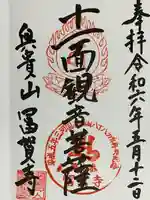 奉拝 令和六年五月十二日
十一面観音菩薩
奥貴山 冨賀寺